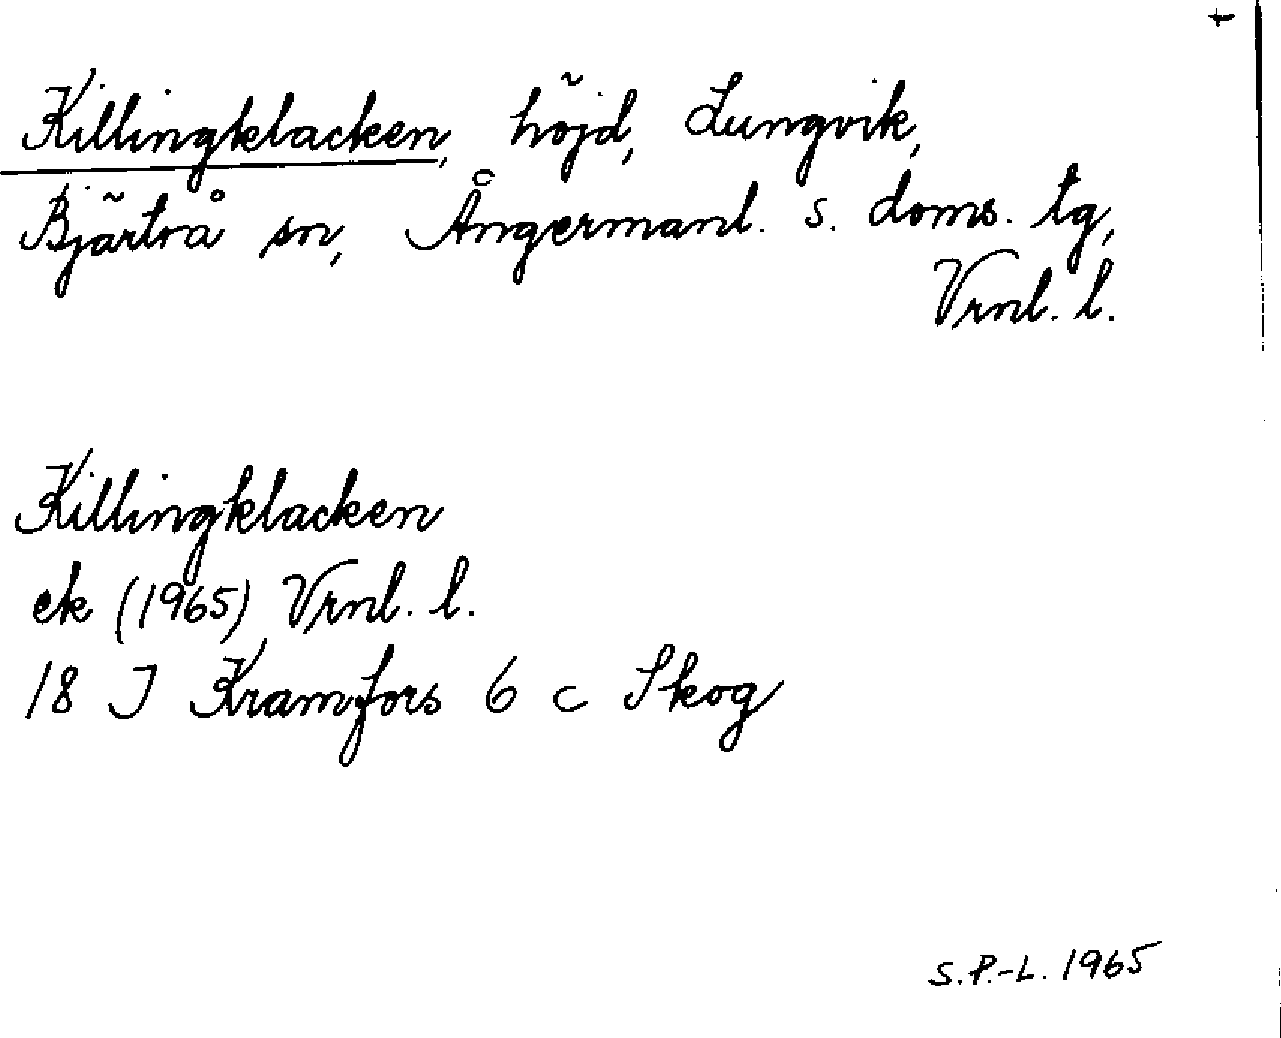 Killingklacken, höjd, Lungvik,
Bjärtrå sn, Ångermanl. s. doms. tg,
Vrnl. l.
Killingklacken
ek (1965) Vrnl. l.
18 J Kramfors 6 c Skog
S.P.-L. 1965